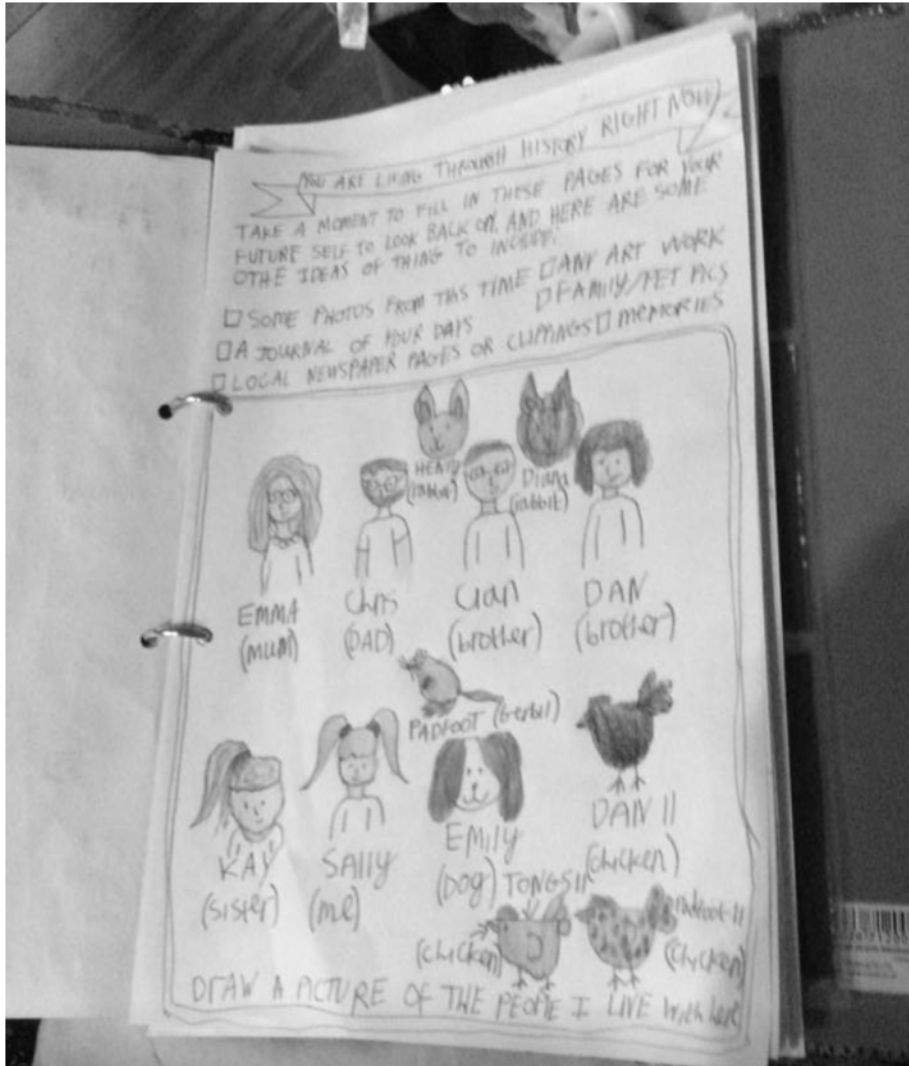 YOU ARE LIVING THROUGH HISTORY RIGHT NOW
TAKE A MOMENT TO FILL IN THESE PAGES FOR YOUR
FUTURE SELF TO LOOK BACK ON. AND HERE ARE SOME
OTHE IDEAS OF THING TO INCLUDE:
SOME PHOTOS FROM THIS TIME
ANY ART WORK
A JOURNAL OF YOUR DAYS
FAMILY/PET PICS
LOCAL NEWSPAPER PAGES OR CLIPPINGS
MEMORIES
HENRY
(rabbit)
Diana
(rabbit)
EMMA
(mum)
Chris
(DAD)
Cian
(brother)
DAN
(brother)
PADFOOT (Gerbil)
KAY
(sister)
Sally
(me)
EMILY
(DOG)
DAN II
(chicken)
(chicken)
Padfoot II
(chicken)
DRAW A PICTURE OF THE PEOPLE I LIVE with here